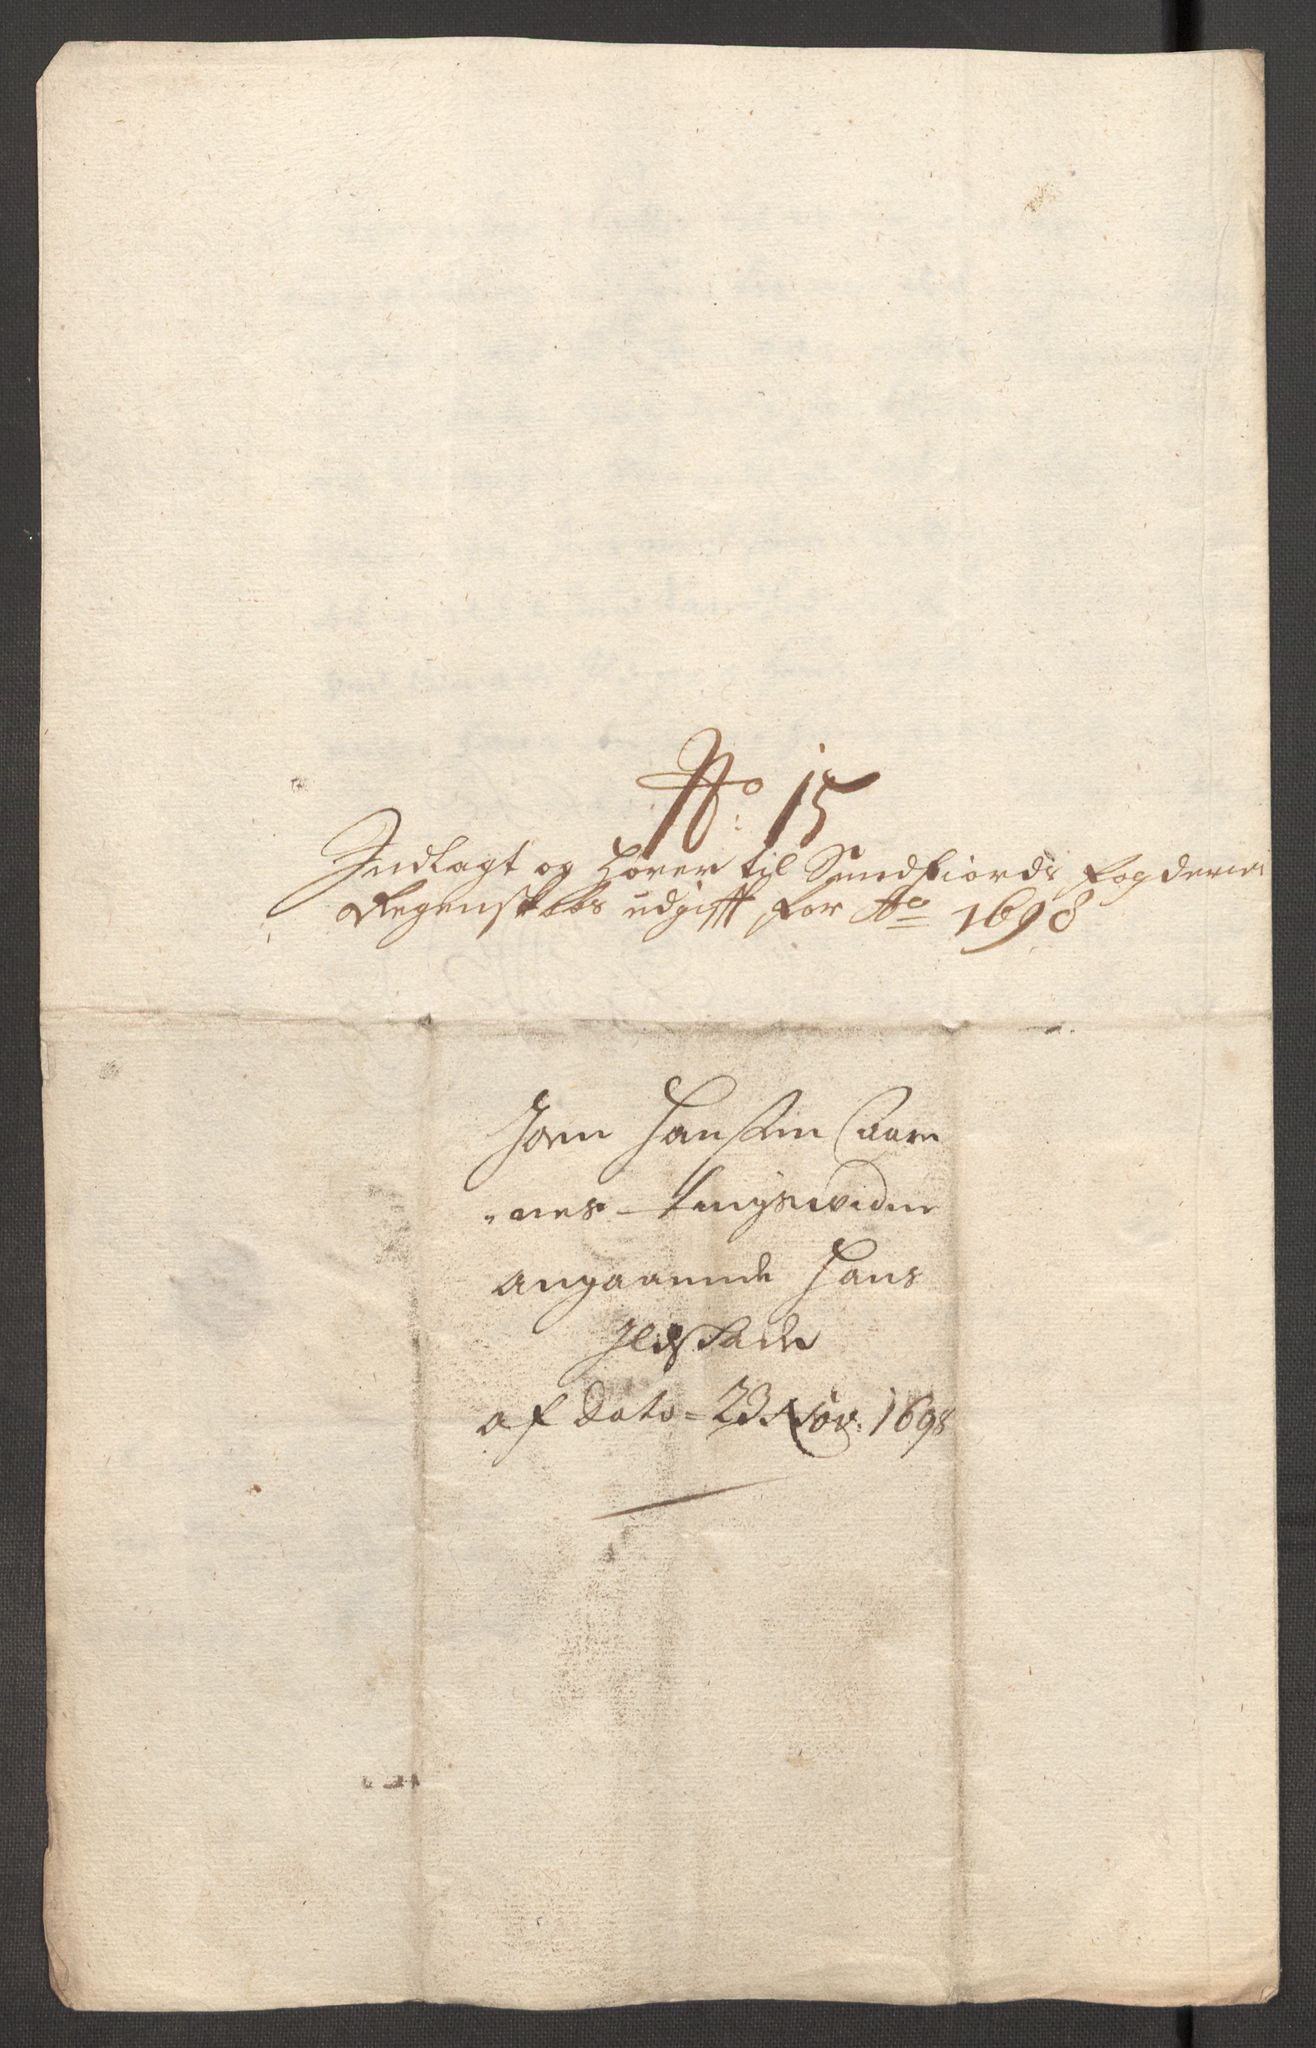 No: 15
Indlagt og hører til Sundfiords fogderies
Regenskabs udgifft for Ao 1698
Joen Hansøn Aare
-nes - tingswidne
angaaende Hans
Ildskade
af Dato = 23 Nov: 1698